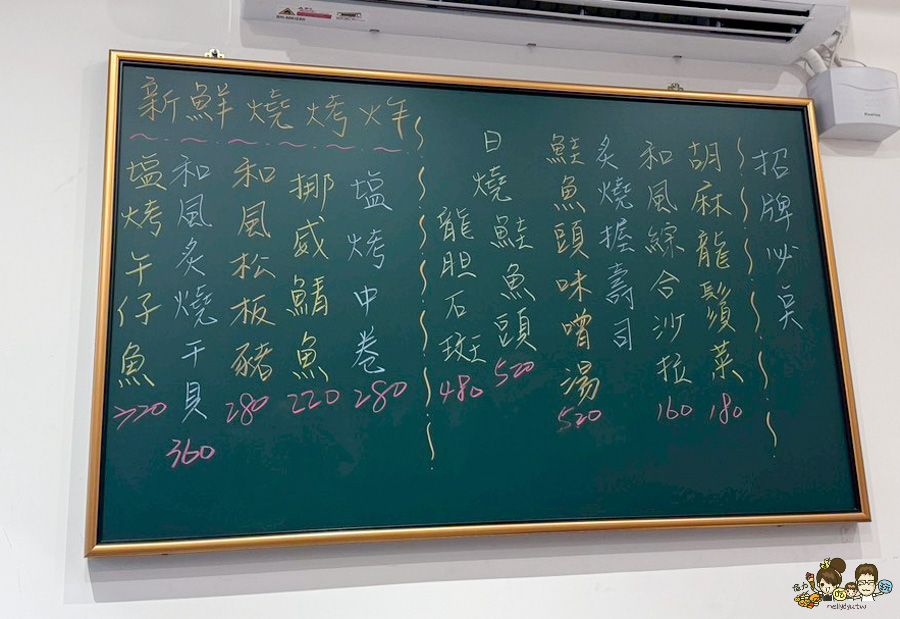 招牌必吳
胡麻龍鬚菜
180
和風綜合沙拉
160
炙燒握壽司
鮭魚頭味噌湯
520
日燒鮭魚頭
520
龍胆石斑
480
新鮮燒烤炸
塩烤中卷
280
挪威鯖魚
220
和風松板豬
280
和風炙燒干貝
360
塩烤午仔魚
220
nellydyu.tw